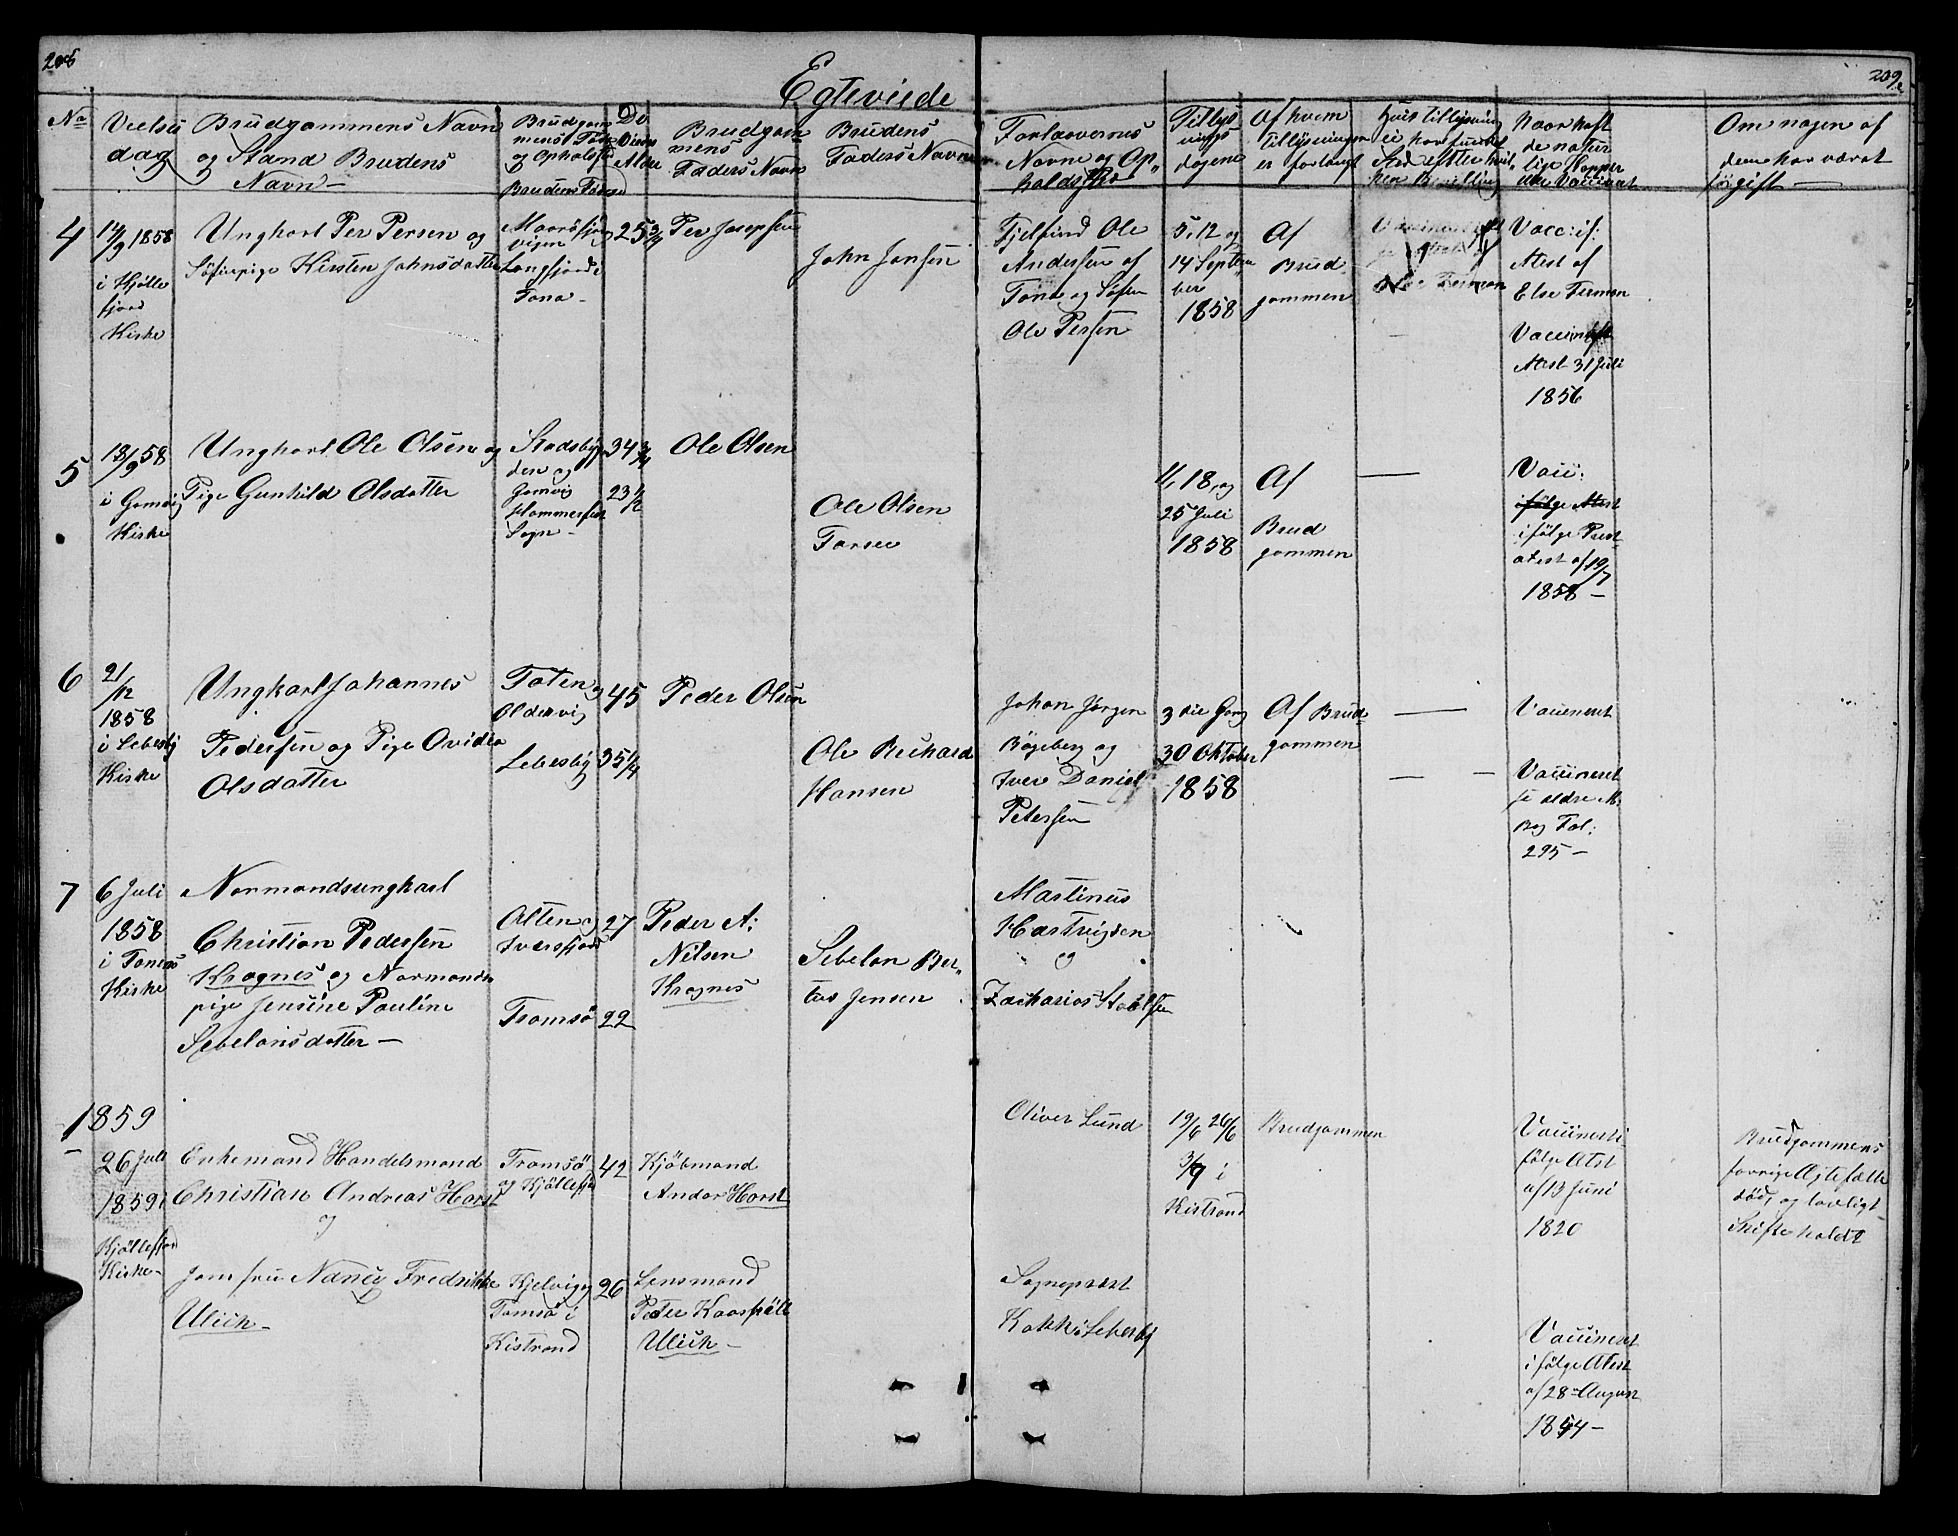 209
Egteviede
No
Vielses
dag
Brudgommens Navn
og Stand Brudens
Navn –
Brudgom
mens
og
Brudens
De
Alder
Brudgom
mens
Faders Navn
Brudens
Faders Navn
Forlovernes
Navne og Op
holdssted
Tillys
nings
dagene
Af hvem
tillysningen
er forlangt
Hvis tillysning
ei har fundet
Sted efter hvil
ken Bevilling
Naar havt
de natur
lige Kopper
eller Vaccineret
Om nogen af
dem har været
før gift —
4
14/9 1858
i Kjølle
fjord
Kirke
Ungkarl Per Persen og
Søfinpige Kirsten Johnsdatter
vigen
Langfjord
Tana –
25 3/4
Per Josepsen
John Jonsen
Fjelfind Ole
Andersen af
Tana og Søfin
Ole Persen
5, 12 og
14 Septem
ber
1858
Af
Brud
gommen
Vacc: if:
Atest af
Else Ferman
Atest 31 Juli
1856
5
18/9 58
i Gamvig
Kirke
Ungkarl Ole Olsen og
Pige Gunhild Olsdatter
Stadsbyg
den og
Gamvig
Hammerfest
Sogn –
34 3/4
23 1/2
Ole Olsen
Ole Olsen
Tarsee
11, 18, og
25 Juli
1858
Af
Brud
gommen
—
Vacc:
ifølge Atest
ifølge Prest
atest af 19/7
1858 –
6
21/12
1858
i Lebesby
Kirke
Ungkarl Johannes
Pedersen og Pige Ovidia
Olsdatter
Toten og
Oldervig
Lebesby
45
35 1/4
Peder Olsen
Ole Richard
Hansen
Johan Jørgen
Bøgeberg og
Iver Daniel
Petersen
3die Gang
30 Oktober
1858
Af Brud
gommen
—
— –
Vaccineret
Vaccineret
se ældre M.
Bog Fol:
295 –
7
6 Juli
1858
i Tanens
Kirke
Normandsungkarl
Christian Pedersen
Kragnes og Normands
pige Jensine Pauline
Sebelonsdatter –
Alten og
Iversfjord
Tromsø
27
22
Peder A:
Nilsen
Kragnes
Sebelon Ber
tus Jensen
Martinus
Hartvigsen
og
Zacharias
1859
26 Juli
1859 i
Kjøllefjord
Kirke –
Enkemand Handelsmand
Christian Andreas Horst
og
Jomfru Nancy Fredrikke
Ulich –
Tromsø
og Kjøllefjord
Kjelvig og
Tamsø i
Kistrand
42
26
Kjøbmand
Andor Horst
Lensmand
Peder
Ulich –
Oliver Lund
Sogneprest
Kokk i Lebesby
19/6 26/6
3/7 i
Kistrand
Brudgommen
Vaccinert i
følge Atst
af 13 Juni
1820
Vaccineret
i følge Atest
af 28de August
1854 –
Brudgommens
forrige Ægtefælle
død, og lovligt
Skifte holdt